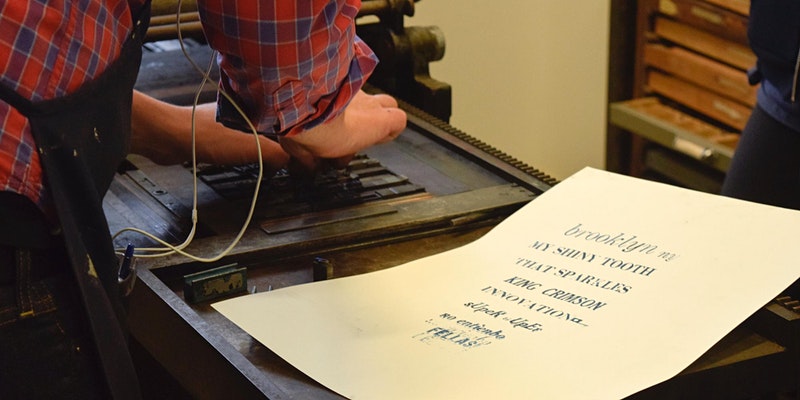 brooklyn ny
MY SHINY TOOTH
THAT SPARKLES
KING CRIMSON
INNOVATION
no entiendo
FELLAS